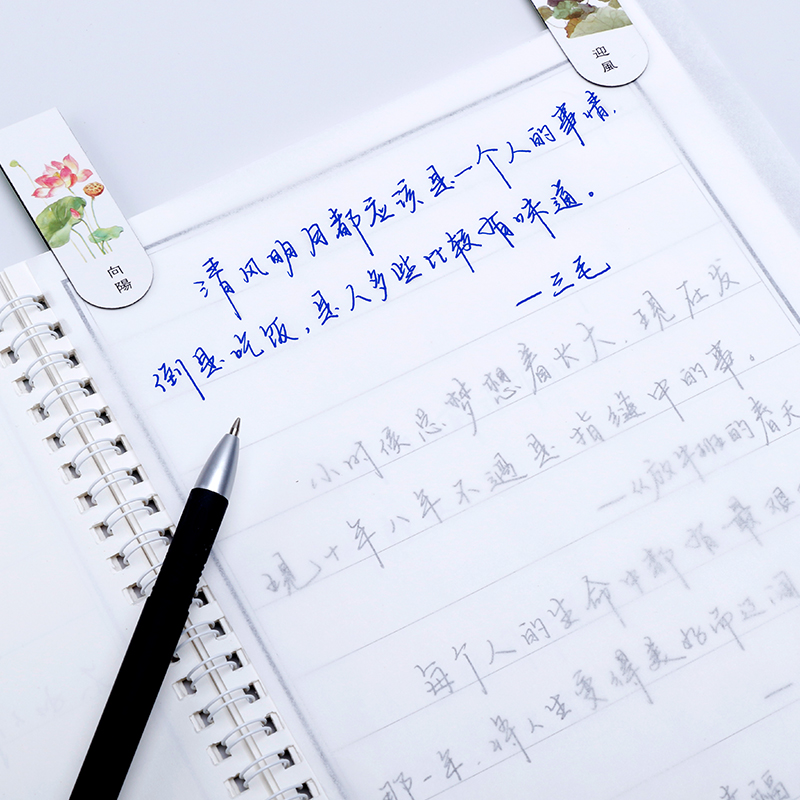 迎風
向陽
清风明月都应该是一个人的事情.
倒是吃饭,是人多些比较有味道。
—三毛
小时候总梦想着长大.现在发
现十年八年不过是指缝中的事。
—《放牛班的春天
每个人的生命中都有最难
那一年.将人生变得美好而辽阔
—
幸福